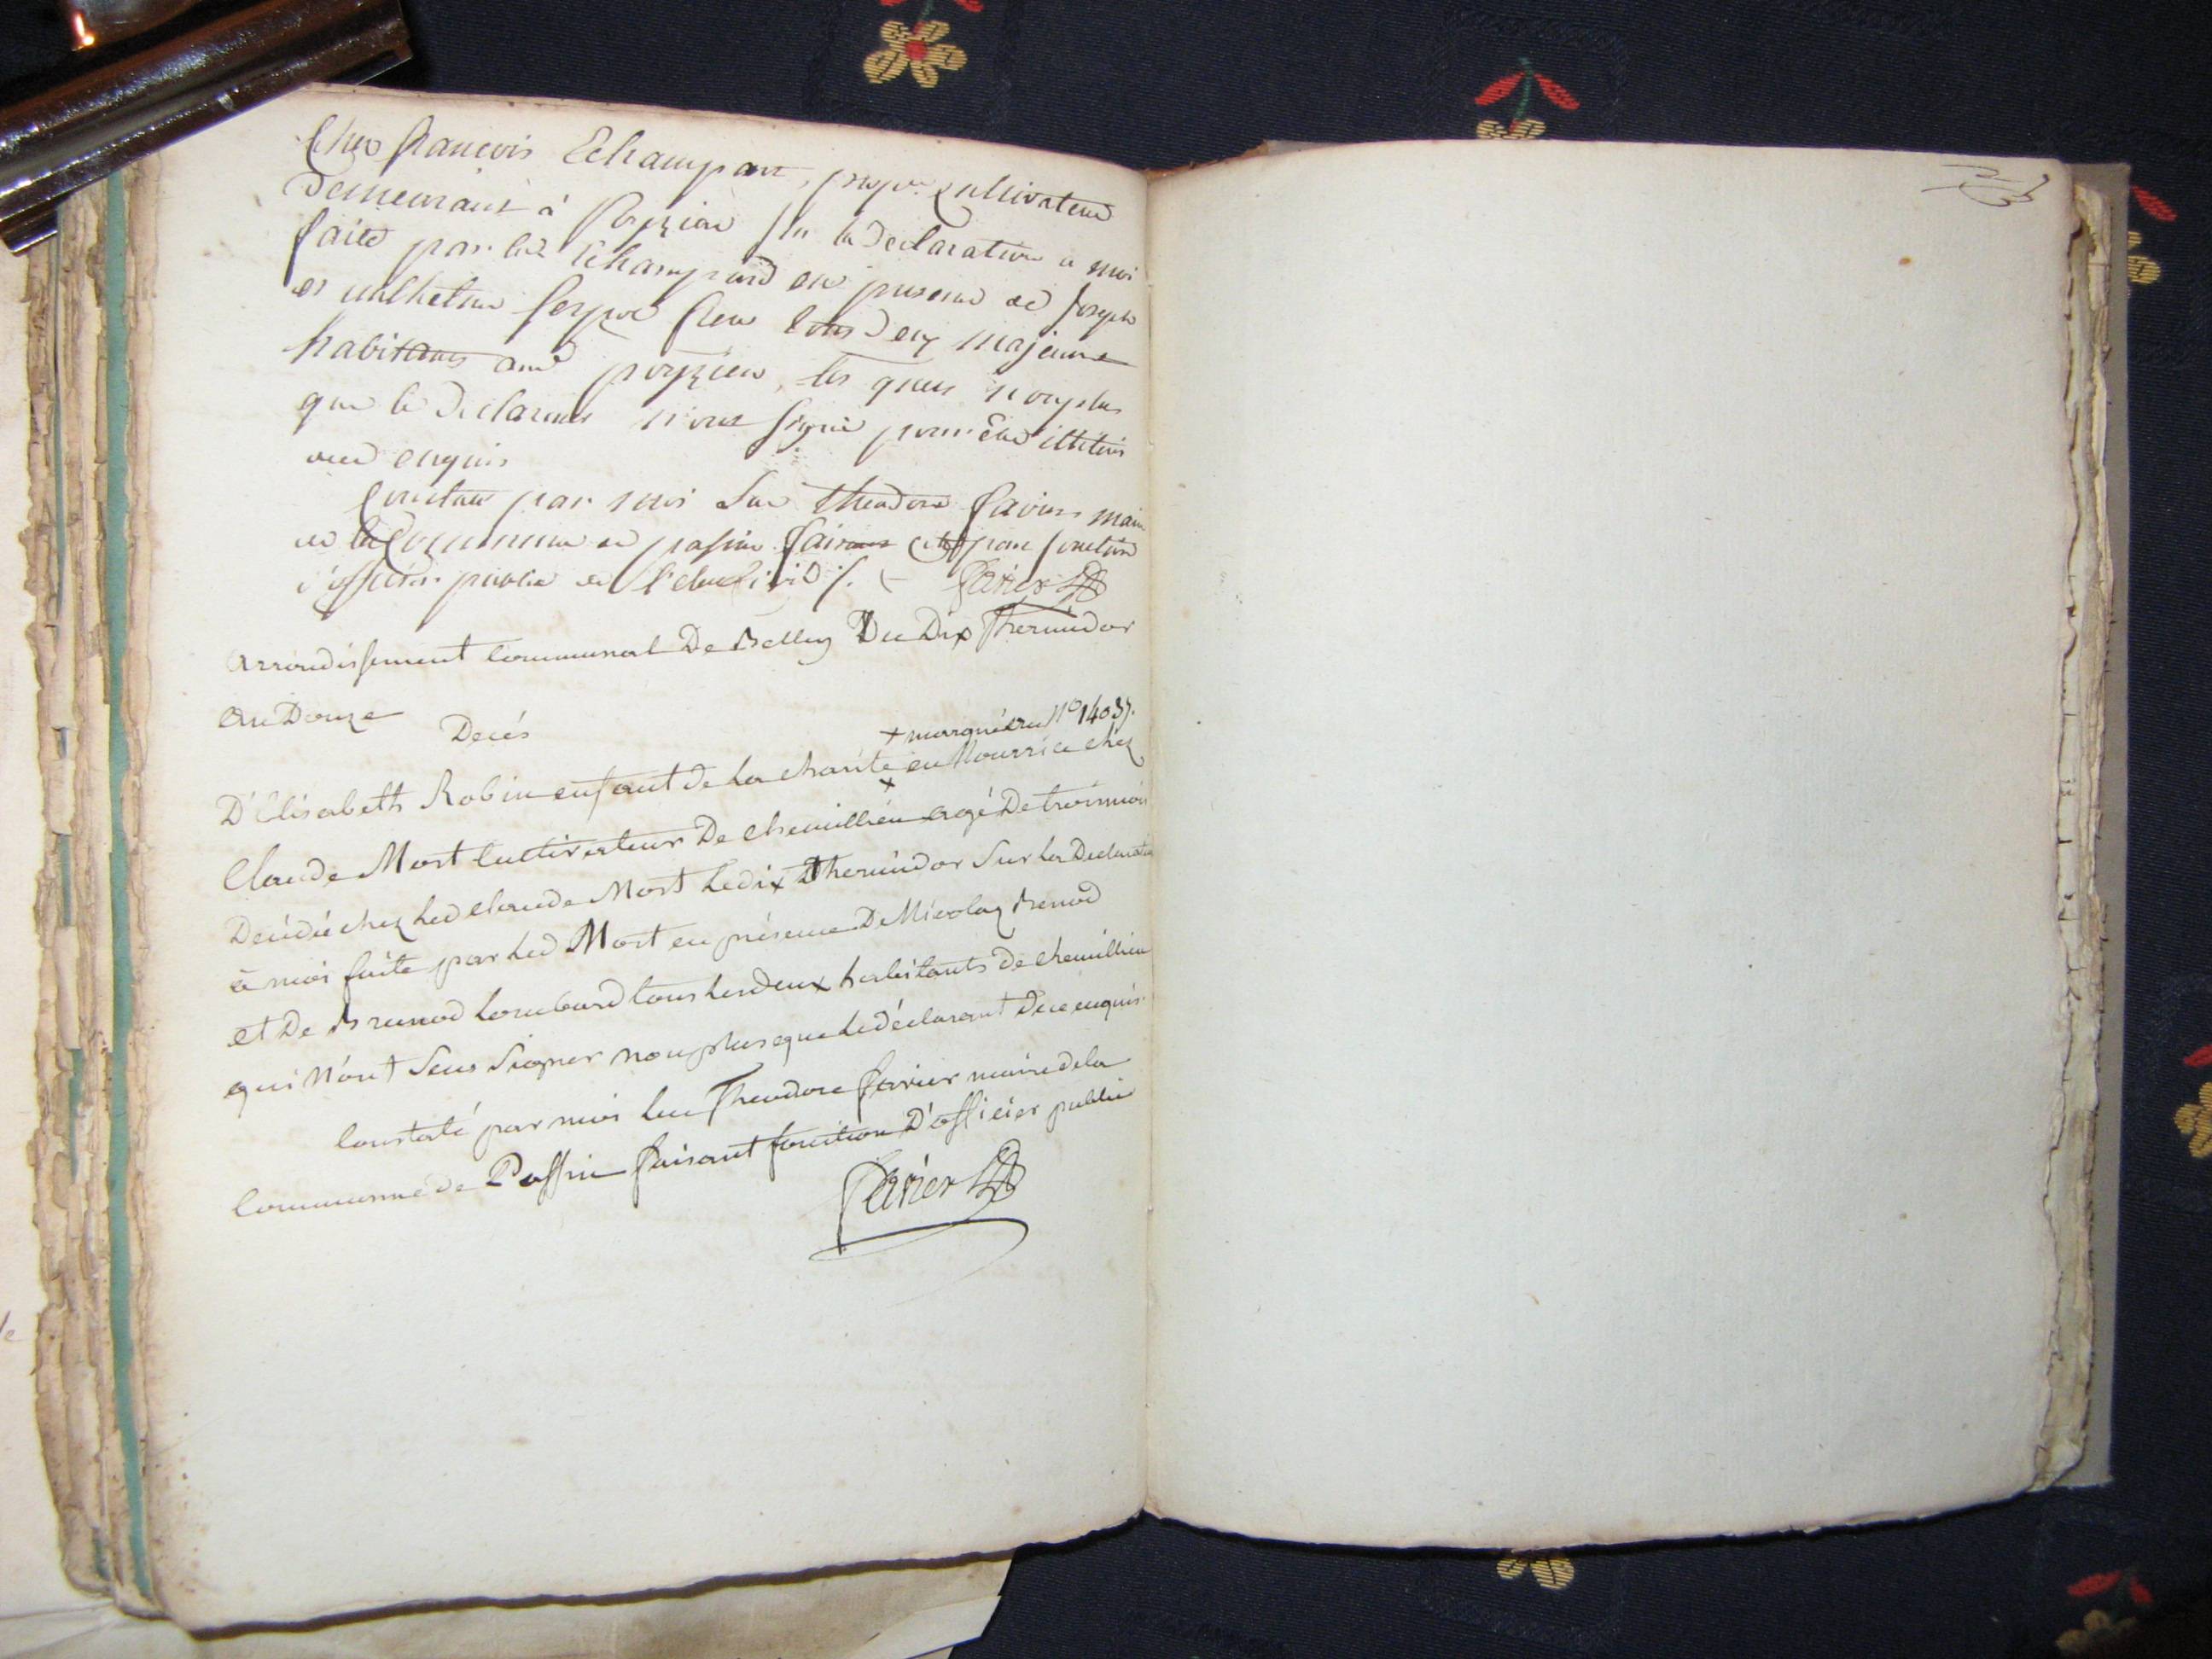 Chez françois Echampart, propre Cultivateur
Demeurant à Poyzieu Sur la Declaration a moi
faite par led Echampard en presence de Joseph
et Fleur tous deux majeure
habitans aud poyzieu, les quels nonplus
que le Declarant n'ont signé pour être illitéris
de enquis
Constaté par moi Luc theodore favier maire
de la Commune de passin faisant fonction
d'officier public de l'etat Civil ./.
favier
Arrondissement Communal De Belley Du Dix Thermidor
An Douze
Decés
+ marqué au N° 14037.
D'Elisabeth Robin enfant de la charité en Nourrice chez
Claude Mort Cultivateur De chemillieu agé De trois mois
Décédé chez Led claude Mort Le dix Thermidor Sur la Declaration
à moi faite par Led Mort en présence De Nicolas Brunod
et De Brunod Lombard tous les deux habitants de chemillieu
qui N'ont Seus Signer non plus que Le déclarant De ce enquis
Constaté par moi Luc Theodore favier maire de la
Commune de Passin faisant fonction D'officier public
favier